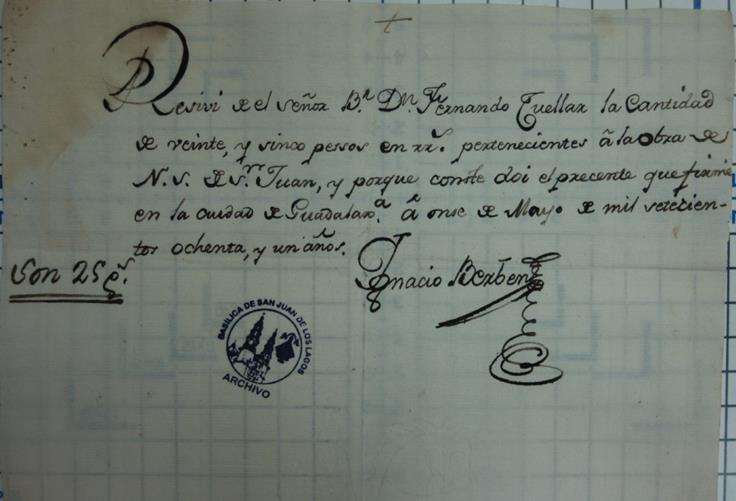 +
Resivi de el señor B.r Dn. Fernando Cuellar la Cantidad
de veinte, y sinco pessos en rr.s pertenecientes â la obra de
N. S. de Sn. Juan, y porque conste doi el precente que firmé
en la ciudad de Guadalax.a â onse de Mayo de mil setecien-
tos ochenta, y un años.
Son 25 p.s
Ignacio Berben
BASÍLICA DE SAN JUAN DE LOS LAGOS
ARCHIVO